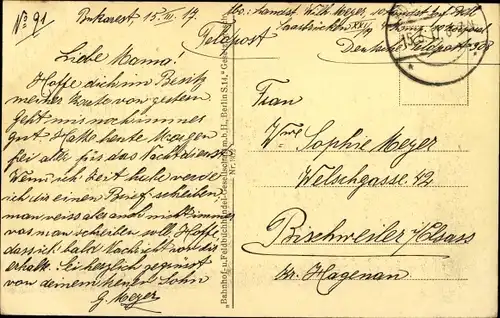 No 91
Bukarest 15. III. 17.
Feldpost
Liebe Mama!
Hoffe dich im Besitz
meiner Karte von gestern.
Geht mir noch immer
gut. Habe heute Morgen
frei aber für das Nachtdienst.
Wenn ich Zeit habe werde
ich dir einen Brief schreiben
man weiss aber auch nicht immer
was man schreiben soll. Hoffe
dass ich bald Nachricht von dir
erhalte. Sei herzlich gegrüsst
von deinem Sohn
G. Meyer
"Bahnhof- u. Feldbuchhandel-Gesellschaft m. b. H., Berlin S. 14."
Wilh. Meyer
Saarbrücken
Deutsche Feldpost
Frau
Wwe Sophie Meyer
Welschgasse 42
Bischweiler i/Elsass
Kr. Hagenau